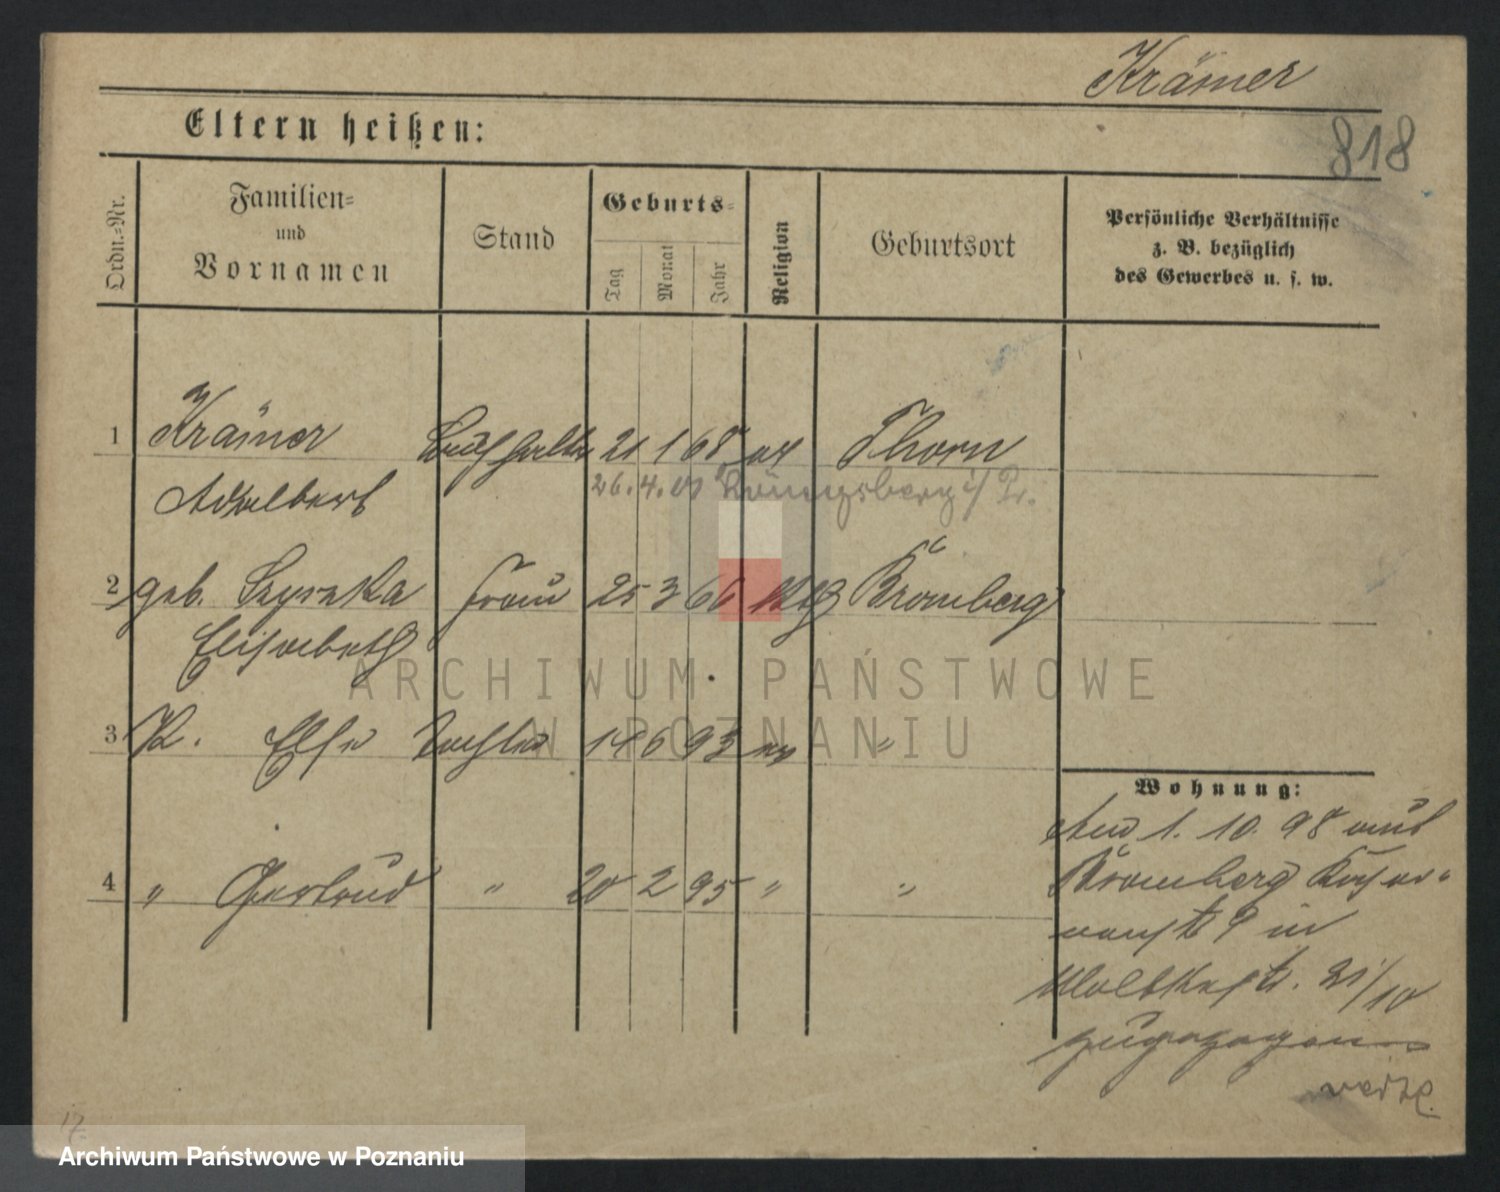 Krämer
818
Eltern heißen:
Ordn.-Nr.
Familien-
und
Vornamen
Stand
Geburts-
Tag
Monat
Jahr
Religion
Geburtsort
Persönliche Verhältnisse
z. B. bezüglich
des Gewerbes u. s. w.
1 Krämer Buchhalter 21 1 68 ev Thorn
Adalbert 26. 4. 01 Königsberg i/ Pr.
2 geb. Frau 25 3 66 kth Bromberg
Elisabeth
3 K. Else Tochter 14 6 93 ev "
4 " Gertrud " 20 2 95 " "
Wohnung:
Am 1. 10. 98 aus
Bromberg
9 in
Moltkestr. 21/10
zugezogen
ARCHIWUM PAŃSTWOWE
W POZNANIU
17.
Archiwum Państwowe w Poznaniu